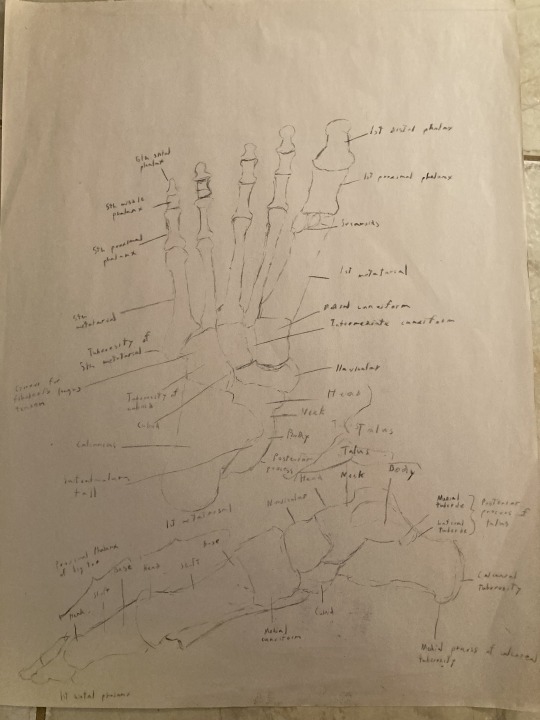 1st distal phalanx
5th distal
phalanx
1st proximal phalanx
5th middle
phalanx
Sesamoids
5th proximal
phalanx
1st metatarsal
Medial cuneiform
5th
metatarsal
Intermediate cuneiform
Tuberosity of
5th metatarsal
Navicular
Groove for
Tuberosity of
cuboid
Head
Neck
Cuboid
Talus
Body
Calcaneus
Posterior
process
Talus
Head
Neck
Body
1st metatarsal
Navicular
Medial
tubercle
Lateral
tubercle
Posterior
process of
talus
Proximal phalanx
of big toe
Base
Shaft
Head
Base
Shaft
Head
Calcaneal
tuberosity
Cuboid
Medial
cuneiform
Medial process of calcaneal
tuberosity
1st distal phalanx